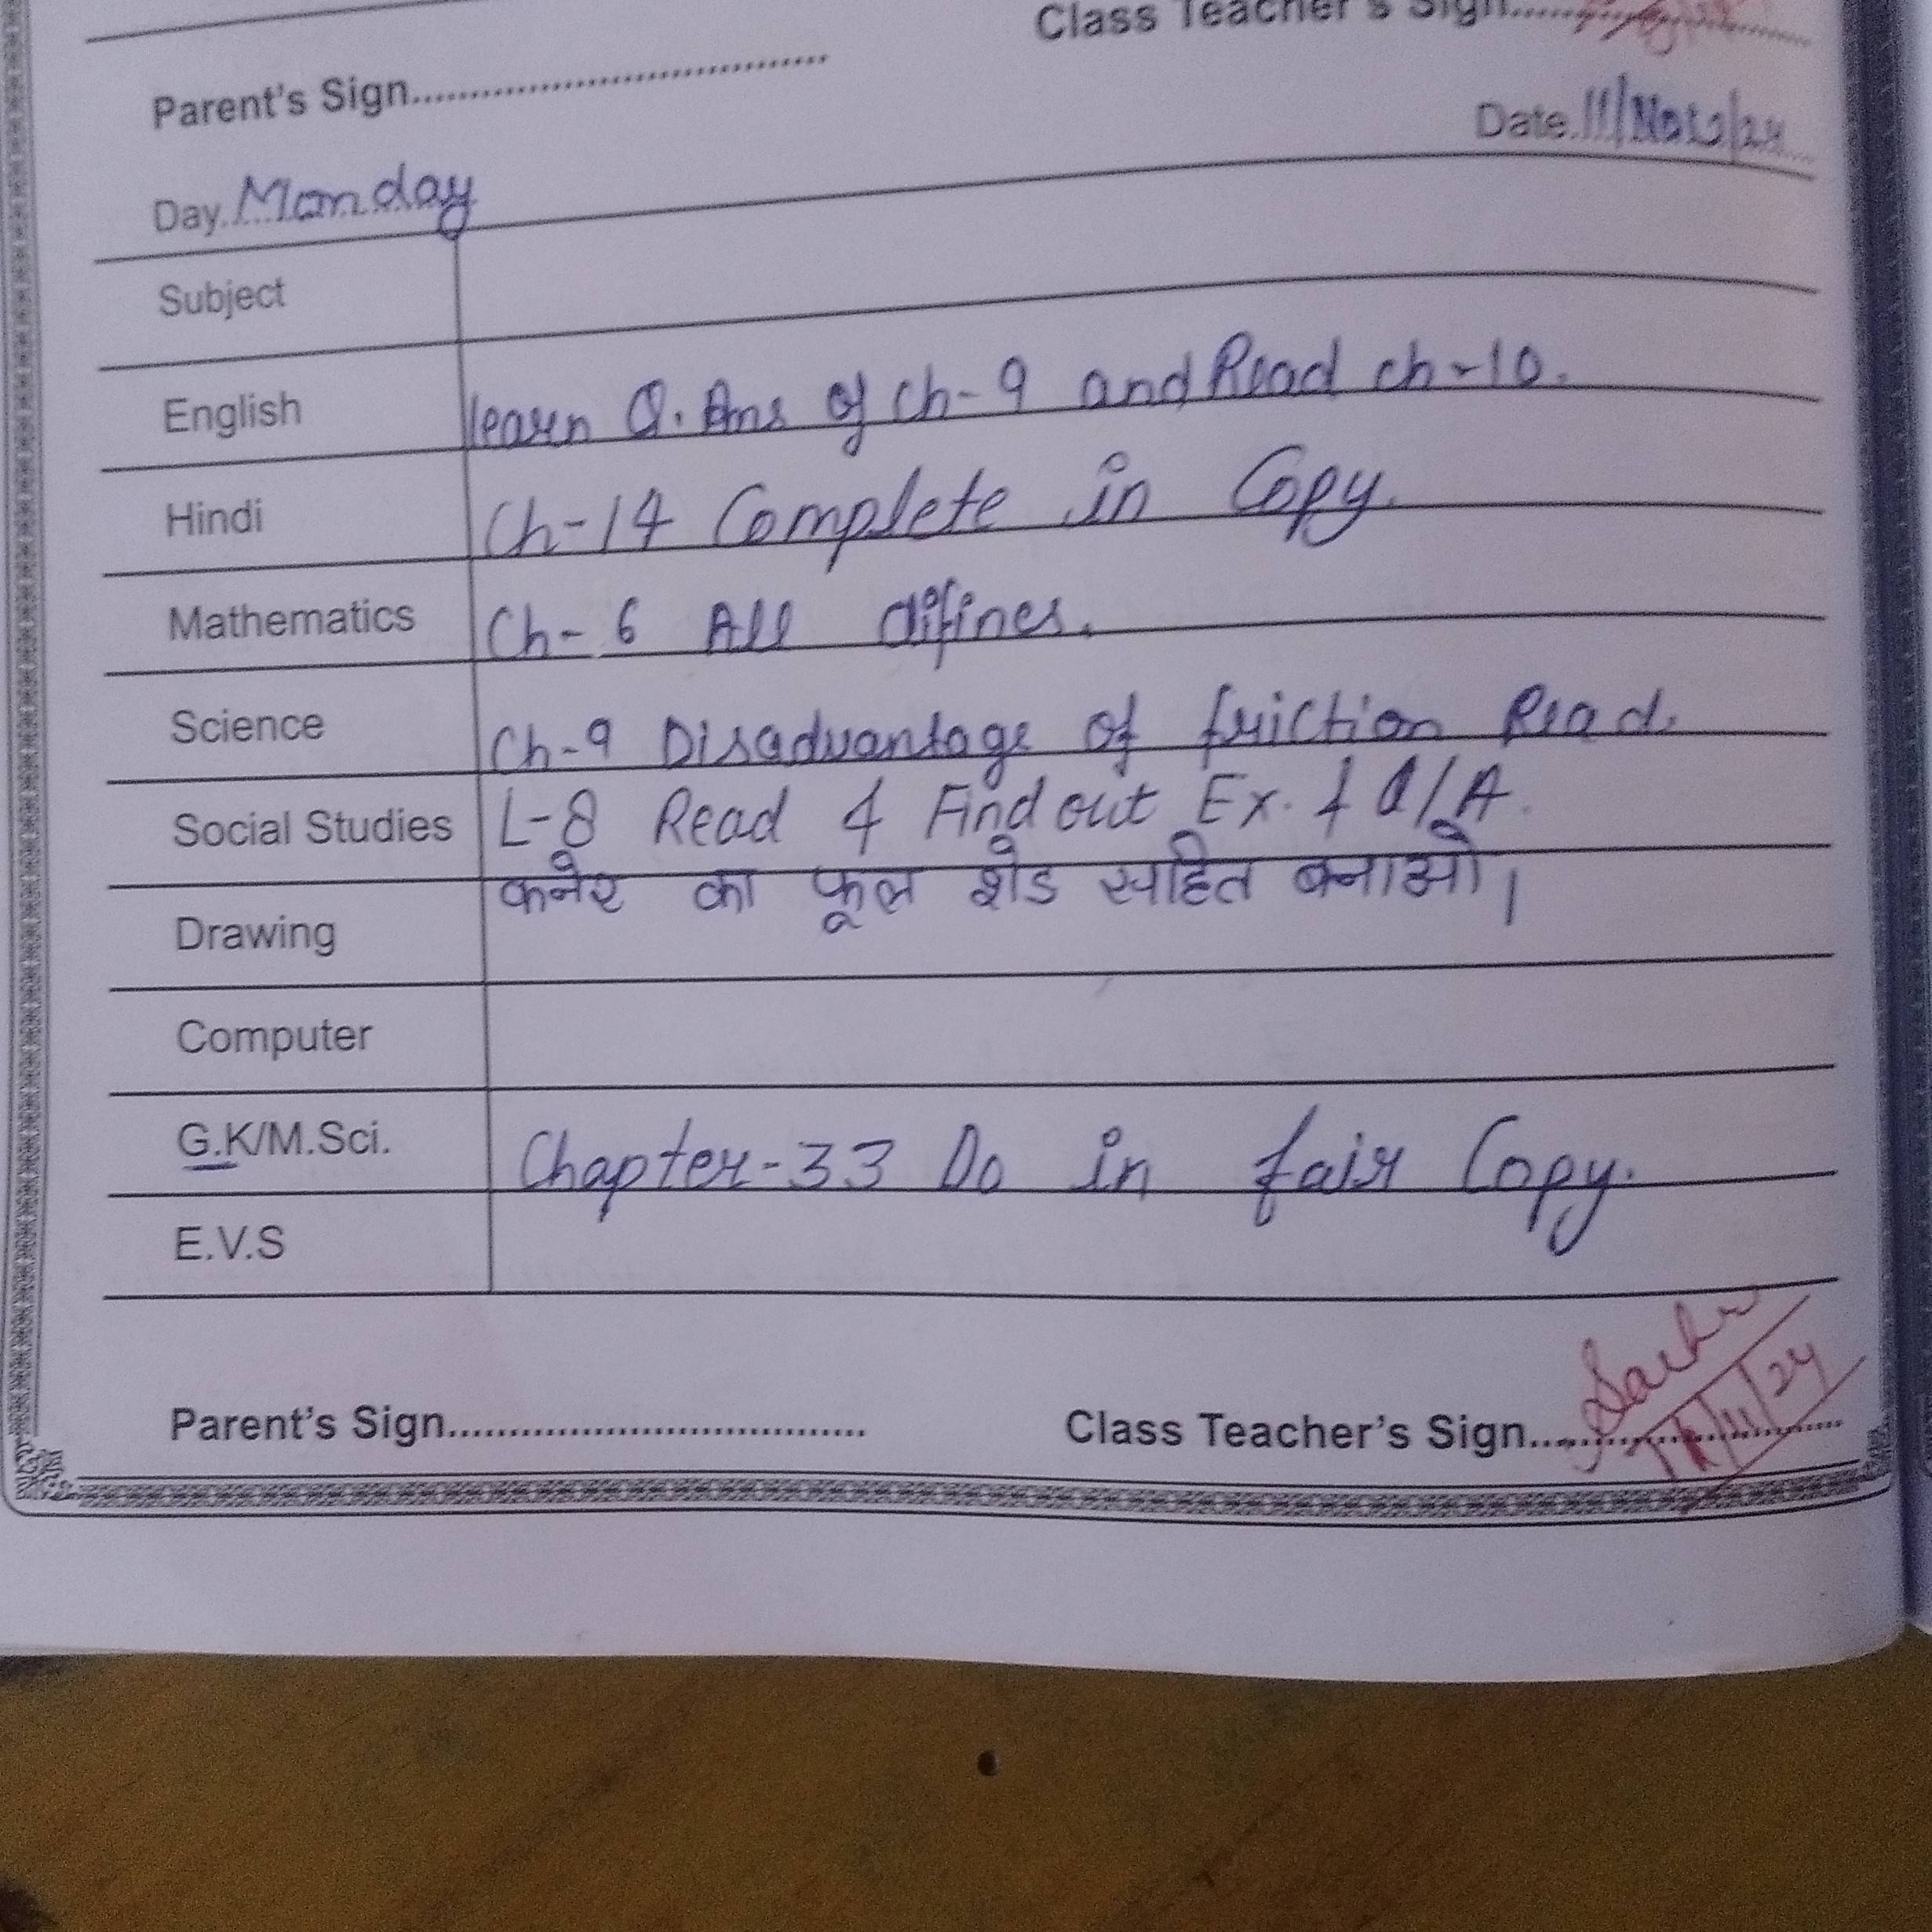 Class Teacher's Sign
Parent's Sign
Date 11/Nov/24
Day Monday
Subject
English learn Q. Ans of ch-9 and Read ch-10.
Hindi Ch-14 Complete in Copy.
Mathematics Ch-6 All difines.
Science Ch-9 Disadvantage of friction Read.
Social Studies L-8 Read & Find out Ex. & Q/A.
Drawing कनेर का फूल शेड सहित बनाओ।
Computer
G.K/M.Sci. Chapter-33 Do in fair Copy.
E.V.S
Parent's Sign
Class Teacher's Sign